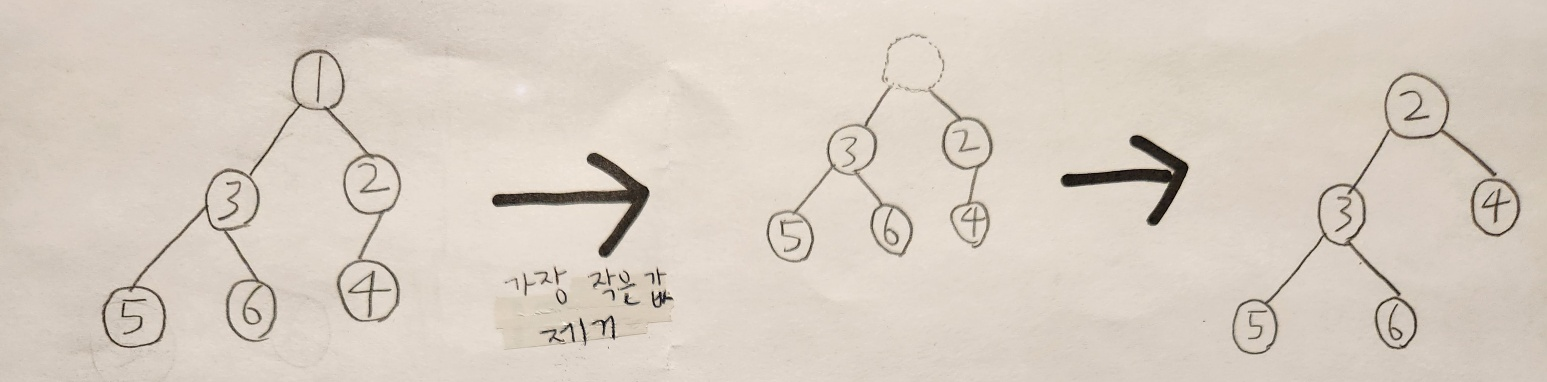 1
3 2
5 6 4
가장 작은 값
제거
3 2
5 6 4
2
3 4
5 6